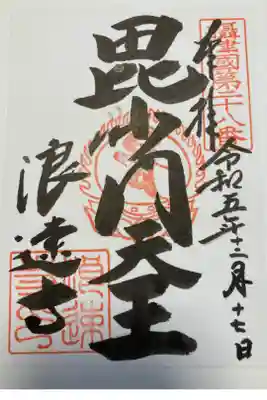 攝津國第二十八番
奉拝
令和五年十二月十七日
毘沙門天王
浪速寺